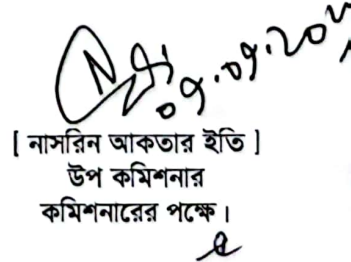 [ নাসরিন আকতার ইতি ]
উপ কমিশনার
কমিশনারের পক্ষে।